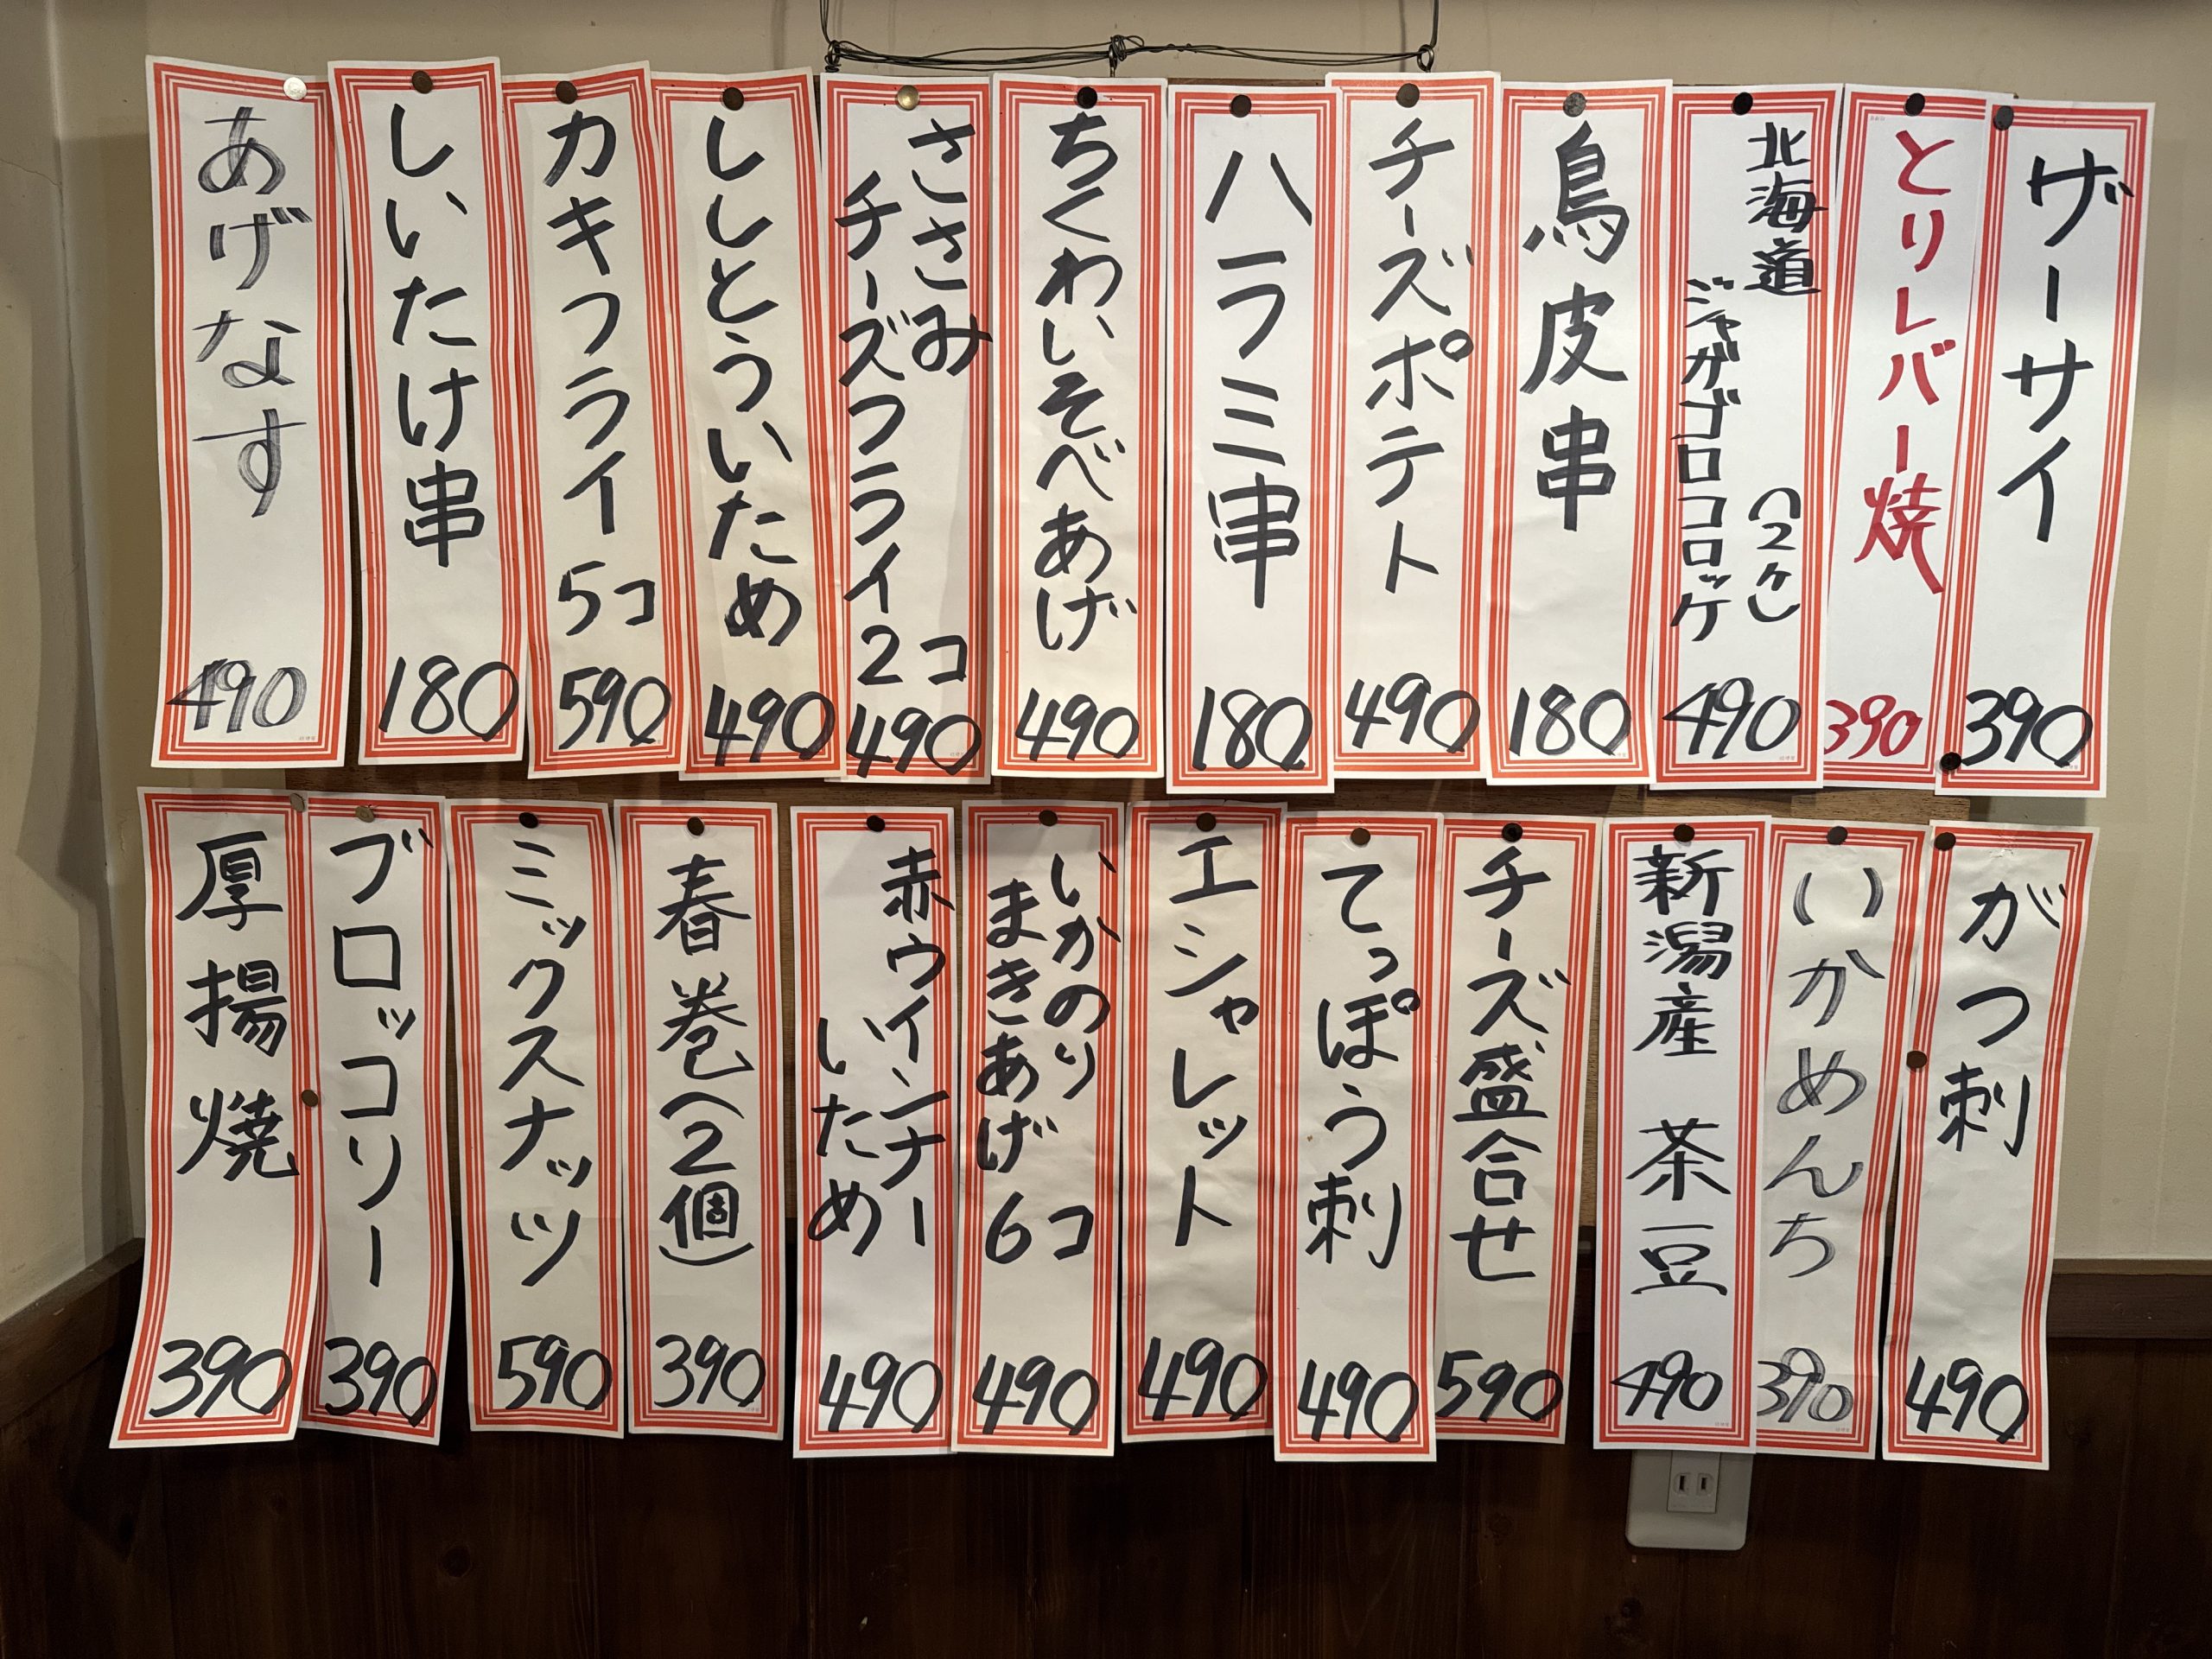 ザーサイ
390
とりレバー焼
390
北海道
ジャガゴロコロッケ
(2ケ)
490
鳥皮串
180
チーズポテト
490
ハラミ串
180
ちくわいそべあげ
490
ささみ
チーズフライ2コ
490
ししとういため
490
カキフライ
5コ
590
しいたけ串
180
あげなす
490
がつ刺
490
いかめんち
390
新潟産 茶豆
490
チーズ盛合せ
590
てっぽう刺
490
エシャレット
490
いかのり
まきあげ6コ
490
赤ウインナー
いため
490
春巻(2個)
390
ミックスナッツ
590
ブロッコリー
390
厚揚焼
390